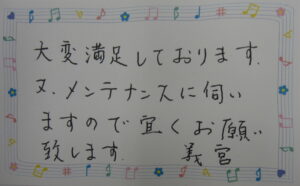 大変満足しております.
又、メンテナンスに伺い
ますので宜くお願い
致します. 義宮